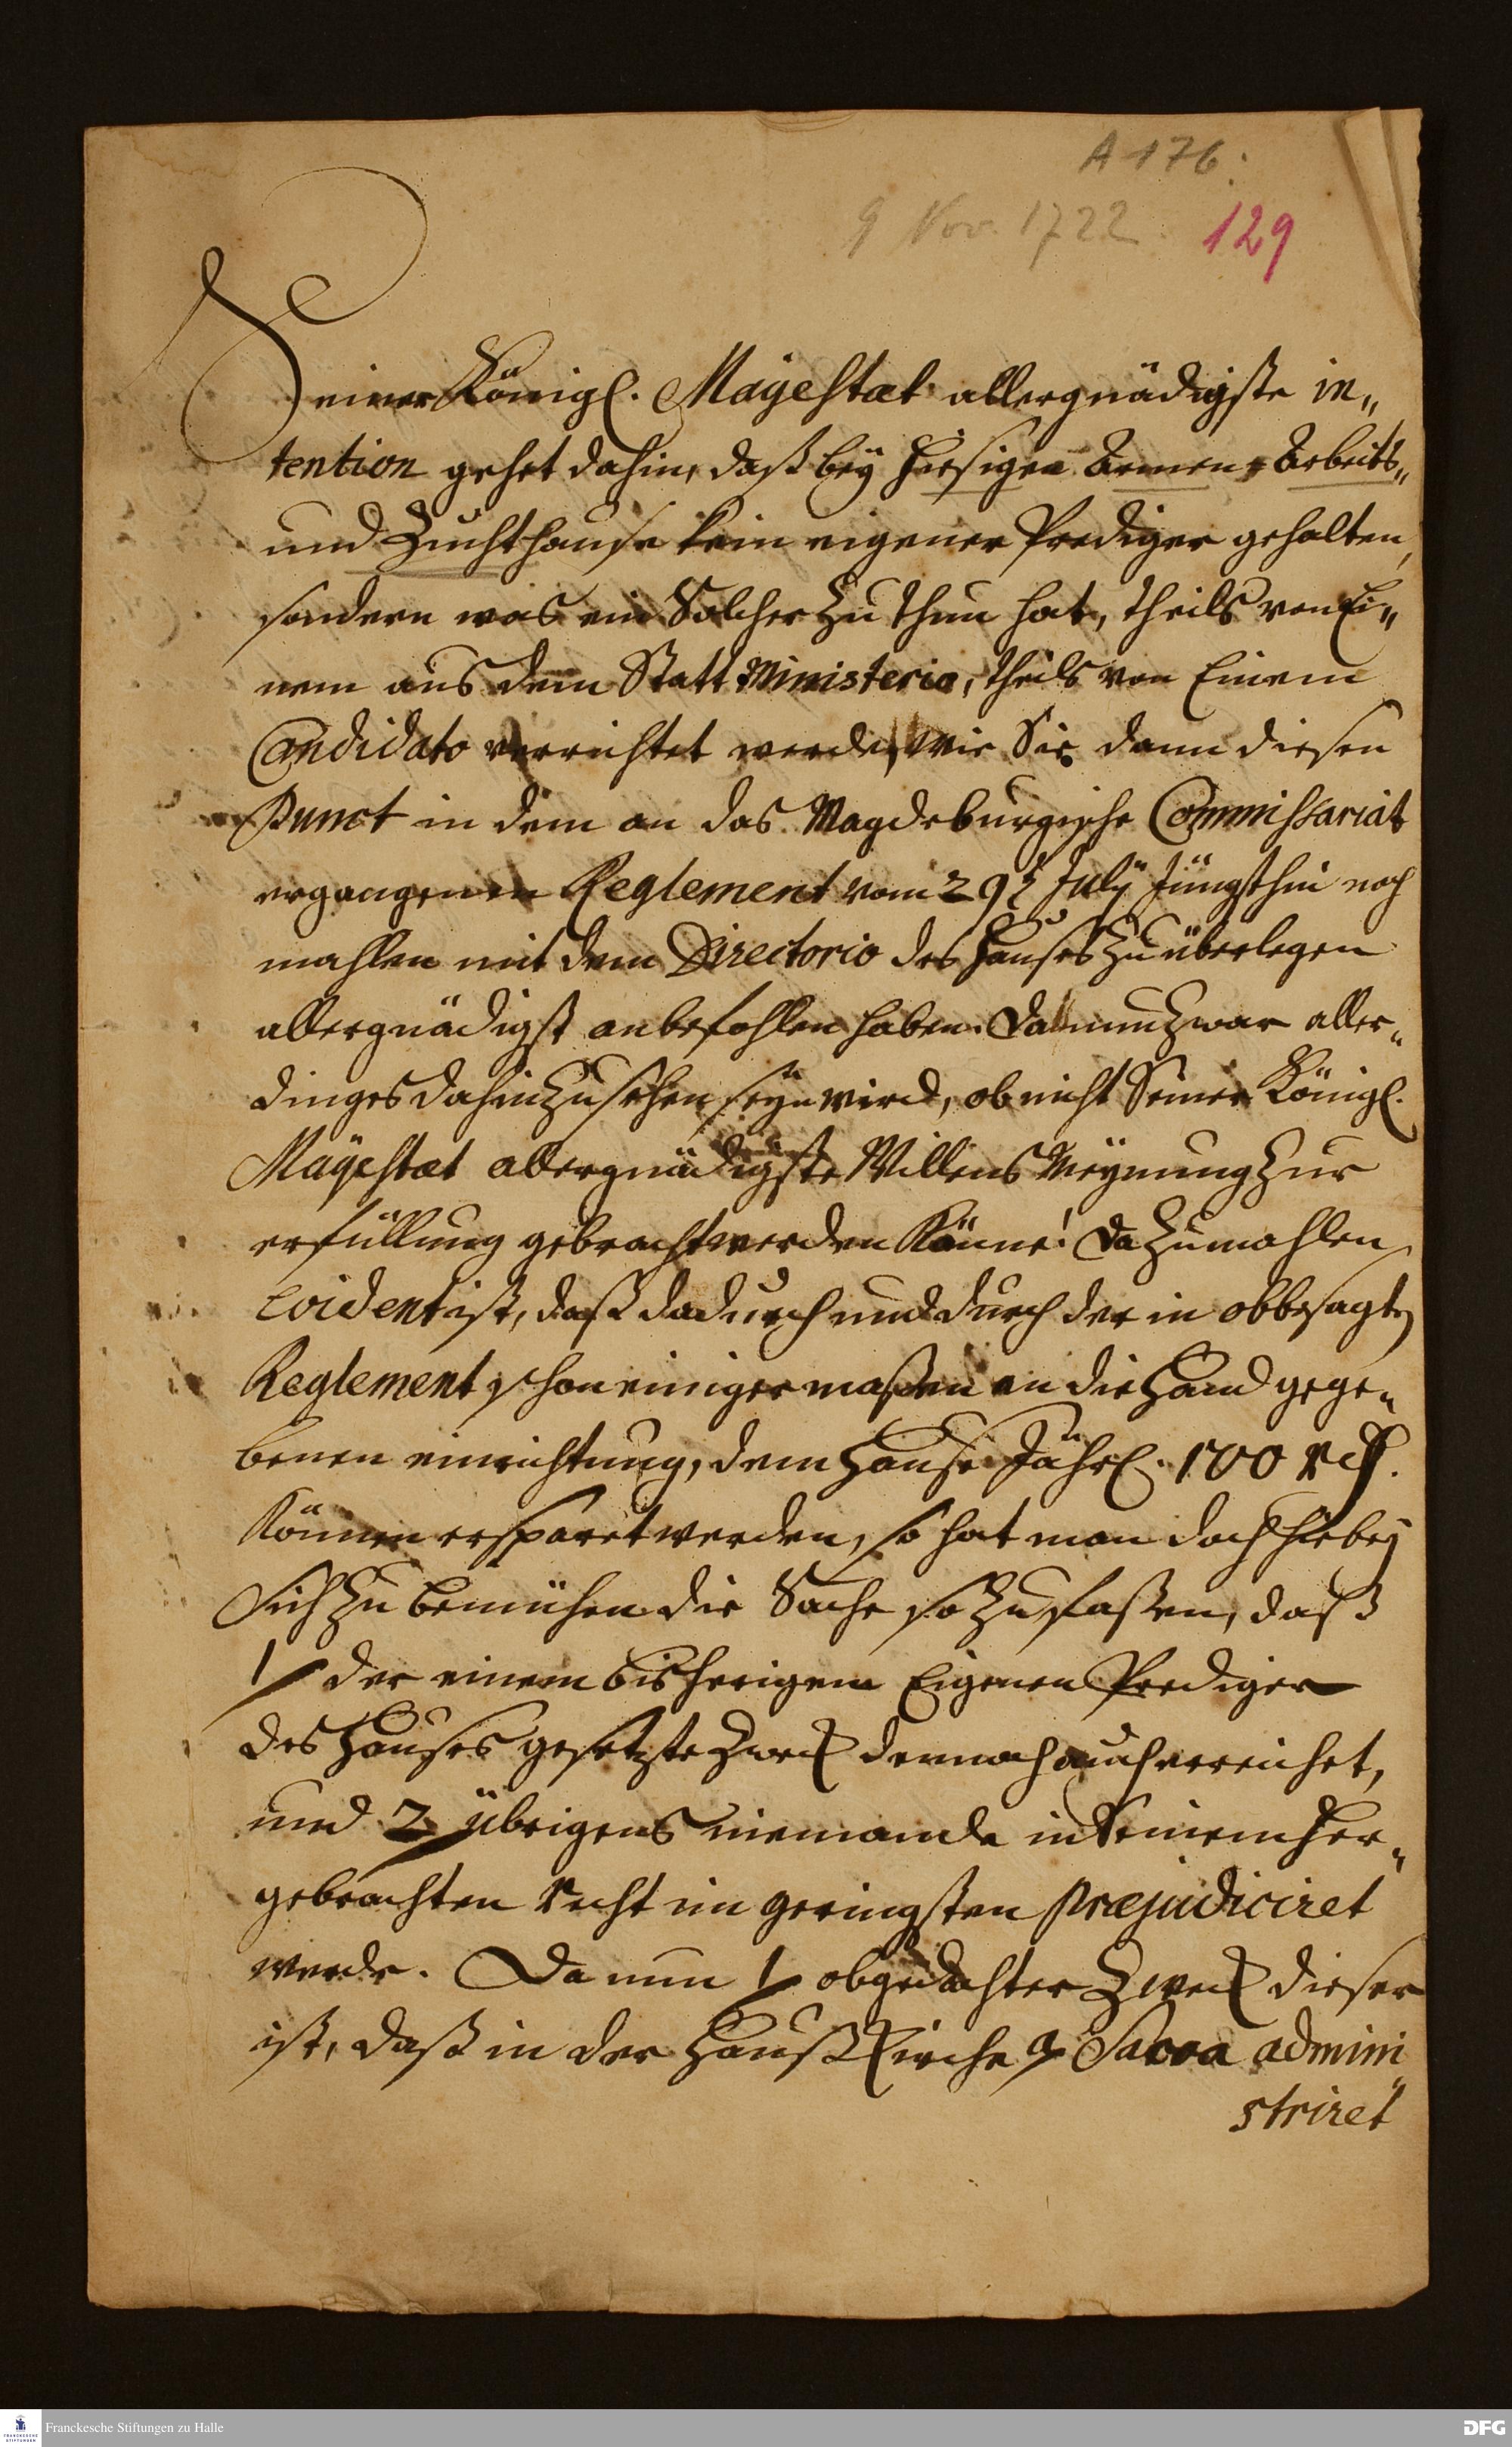 A 176.
9 Nov. 1722.
129
Seiner Königl. Mayestæt allergnädigste in„
tention gehet dahin, daß bey hiesigen Armen- Arbeits„
und Zuchthause kein eigener Prediger gehalten,
sondern was ein Solcher zu thun hat, theils von Ei„
nem aus dem Statt Ministerio, theils von Einem
Candidato verrichtet werde, wie Sie dann diesen
Punct in dem an das Magdeburgische Commissariat
ergangenen Reglement vom 29t July jüngsthin noch
mahlen mit dem Directorio des Hauses zu überlegen
allergnädigst anbefohlen haben. Da nun zwar aller„
dinges dahin zu sehen seyn wird, ob nicht Seiner Königl.
Mayestæt allergnädigste Willens Meynung zur
erfüllung gebracht werden könne! Da zumahlen
Evident ist, daß dadurch und durch der in obbesagten
Reglement schon einiger maßen an die Hand gege„
benen einrichtung, dem Hause Jährl. 100 rthl.
können ersparet werden, so hat man doch hiebey
Sich zu bemühen die Sache so zu faßen, daß
1/ der einem bisherigem Eigenen Prediger
des Hauses gesetzte Zweck dennoch auch erreichet,
und 2/ übrigens niemande in Seinem her„
gebrachten recht im geringsten præjudiciret
werde. Da nun 1/ obgedachter Zweck dieser
ist, daß in der Hauß Kirche a Sacra admini
striret
Franckesche Stiftungen zu Halle
FRANCKESCHE STIFTUNGEN
DFG